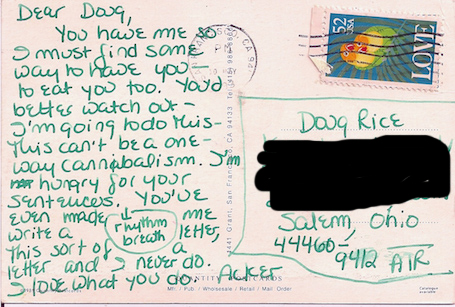 Dear Doug,
You have me so
I must find some
way to have you —
to eat you too. You'd
better watch out —
I'm going to do this —
This can't be a one-
way cannabalism. I'm
hungry for your
sentences. You've
even made me
rhythm
breath
write a letter,
this sort of a
letter and I never do.
I love what you do, Acker
52
USA
LOVE
CA
PM
Doug Rice
Salem, Ohio
44460-
9412 AIR
Grant, San Francisco, CA 94133 Tel. (415)
CARDS
Pub / Wholesale / Retail / Mail Order
Catalogue
available